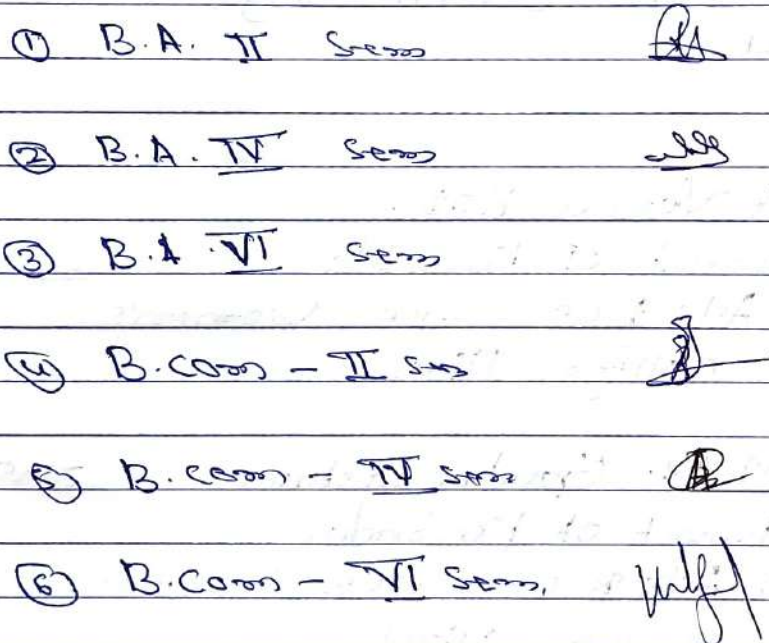 ① B.A. II Sem
② B.A. IV Sem
③ B.A VI Sem
④ B.Com - II Sem
⑤ B.Com - IV Sem
⑥ B.Com - VI Sem.